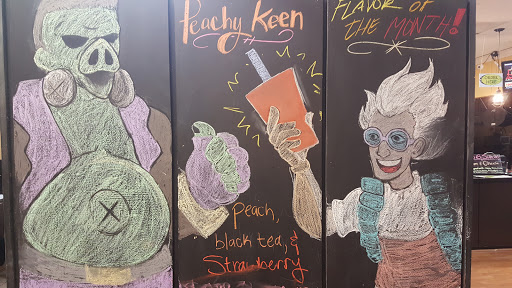 Peachy Keen
FLAVOR OF
THE MONTH!
peach,
black tea, &
Strawberry